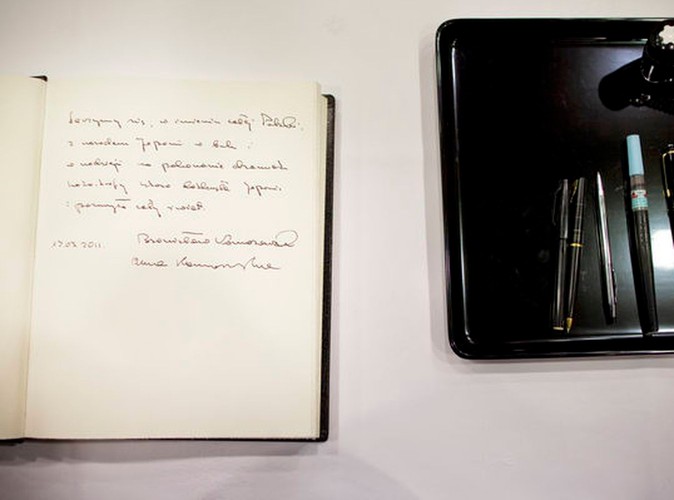 Łączymy się, w imieniu całej Polski,
z narodem Japonii w bólu i
w nadziei na pokonanie dramatu
która dotknęła Japonię
i poruszyła cały świat.
17.03.2011. Bronisław Komorowski
Anna Komorowska